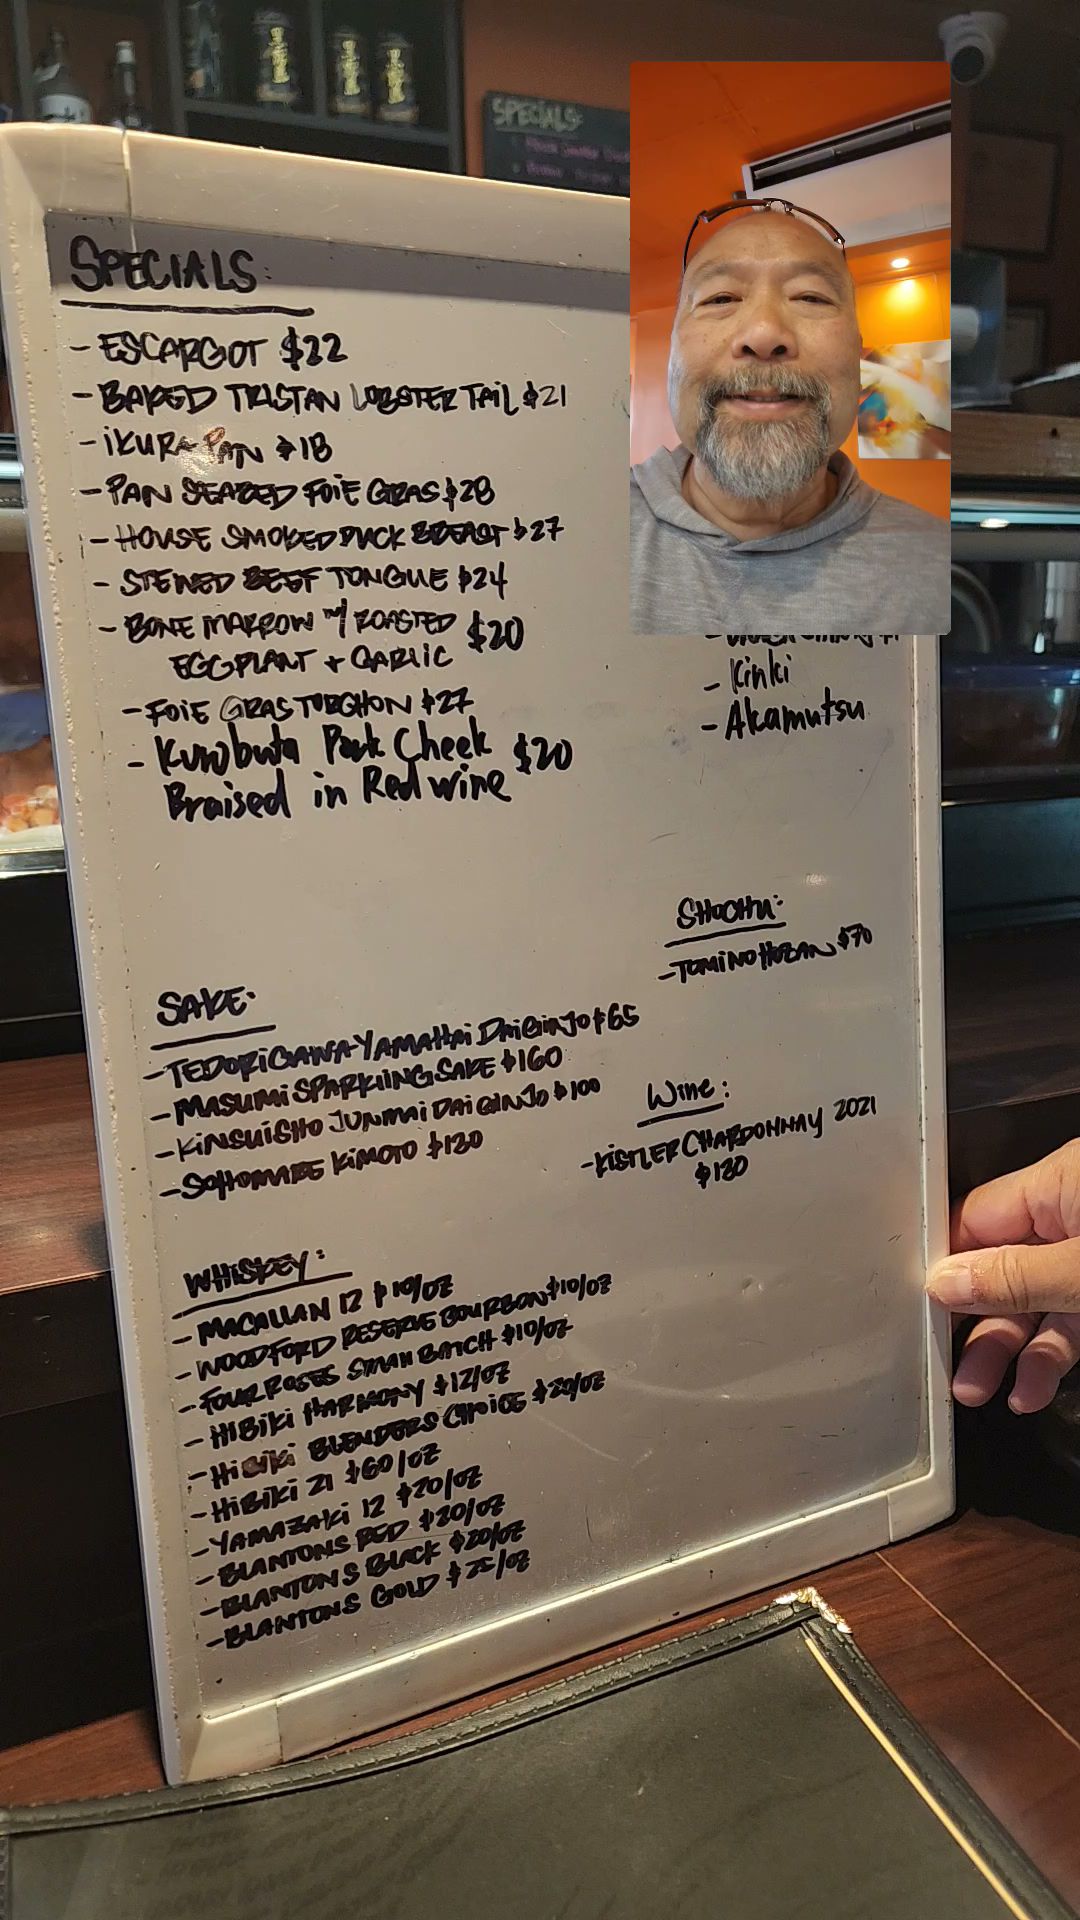 SPECIALS:
SPECIALS:
- ESCARGOT $22
- BAKED TRISTAN LOBSTER TAIL $21
- IKURA PAN $18
- PAN SEARED FOIE GRAS $28
- HOUSE SMOKED DUCK BREAST $27
- STEWED BEEF TONGUE $24
- BONE MARROW W/ ROASTED $20
EGGPLANT + GARLIC
- FOIE GRAS TORCHON $27
- Kurobuta Pork Cheek $20
Braised in Red wine
- Kinki
- Akamutsu
SHOCHU:
- TOMINO HOZAN $70
SAKE:
- TEDORIGAWA YAMAHAI DAIGINJO $65
- MASUMI SPARKLING SAKE $160
- KINSUISHO JUNMAI DAIGINJO $100
- SOHOMARE KIMOTO $130
Wine:
- KISTLER CHARDONNAY 2021
$130
WHISKEY:
- MACALLAN 12 $10/OZ
- WOODFORD RESERVE BOURBON $10/OZ
- FOUR ROSES SMALL BATCH $10/OZ
- HIBIKI HARMONY $12/OZ
- HIBIKI BLENDERS CHOICE $20/OZ
- HIBIKI 21 $60/OZ
- YAMAZAKI 12 $20/OZ
- BLANTONS RED $20/OZ
- BLANTONS BLACK $20/OZ
- BLANTONS GOLD $25/OZ